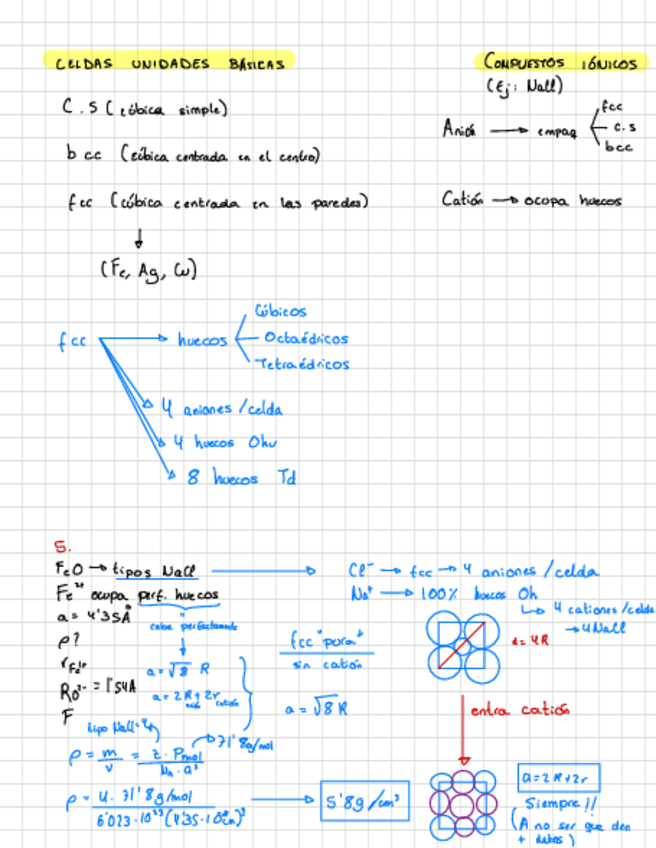 CELDAS UNIDADES BÁSICAS
C.S (cúbica simple)
bcc (cúbica centrada en el centro)
fcc (cúbica centrada en las paredes)
(Fe, Ag, Cu)
COMPUESTOS IÓNICOS
(Ej: NaCl)
Anión → empaq
fcc
c.s
bcc
Catión → ocupa huecos
fcc → huecos
Cúbicos
Octaédricos
Tetraédricos
4 aniones/celda
4 huecos Oh
8 huecos Td
5.
FeO → tipos NaCl
Cl⁻ → fcc → 4 aniones/celda
Fe²⁺ ocupa perf. huecos
Na⁺ → 100% huecos Oh
↳ 4 cationes/celda
→ 4 NaCl
a = 4'35Å
cabe perfectamente
ρ?
fcc "pura"
sin catión
d = 4R
a = √8 R
a = 2R + 2r
catión
a = √8 R
entra catión
F
tipo NaCl
ρ = m/v = z · Pmol / NA · a³
→ 71'8g/mol
ρ = 4 · 71'8g/mol / 6'023·10²³ (4'35·10⁻⁸cm)³ → 5'8g/cm³
a = 2R + 2r
Siempre!!
(A no ser que den
+ datos)